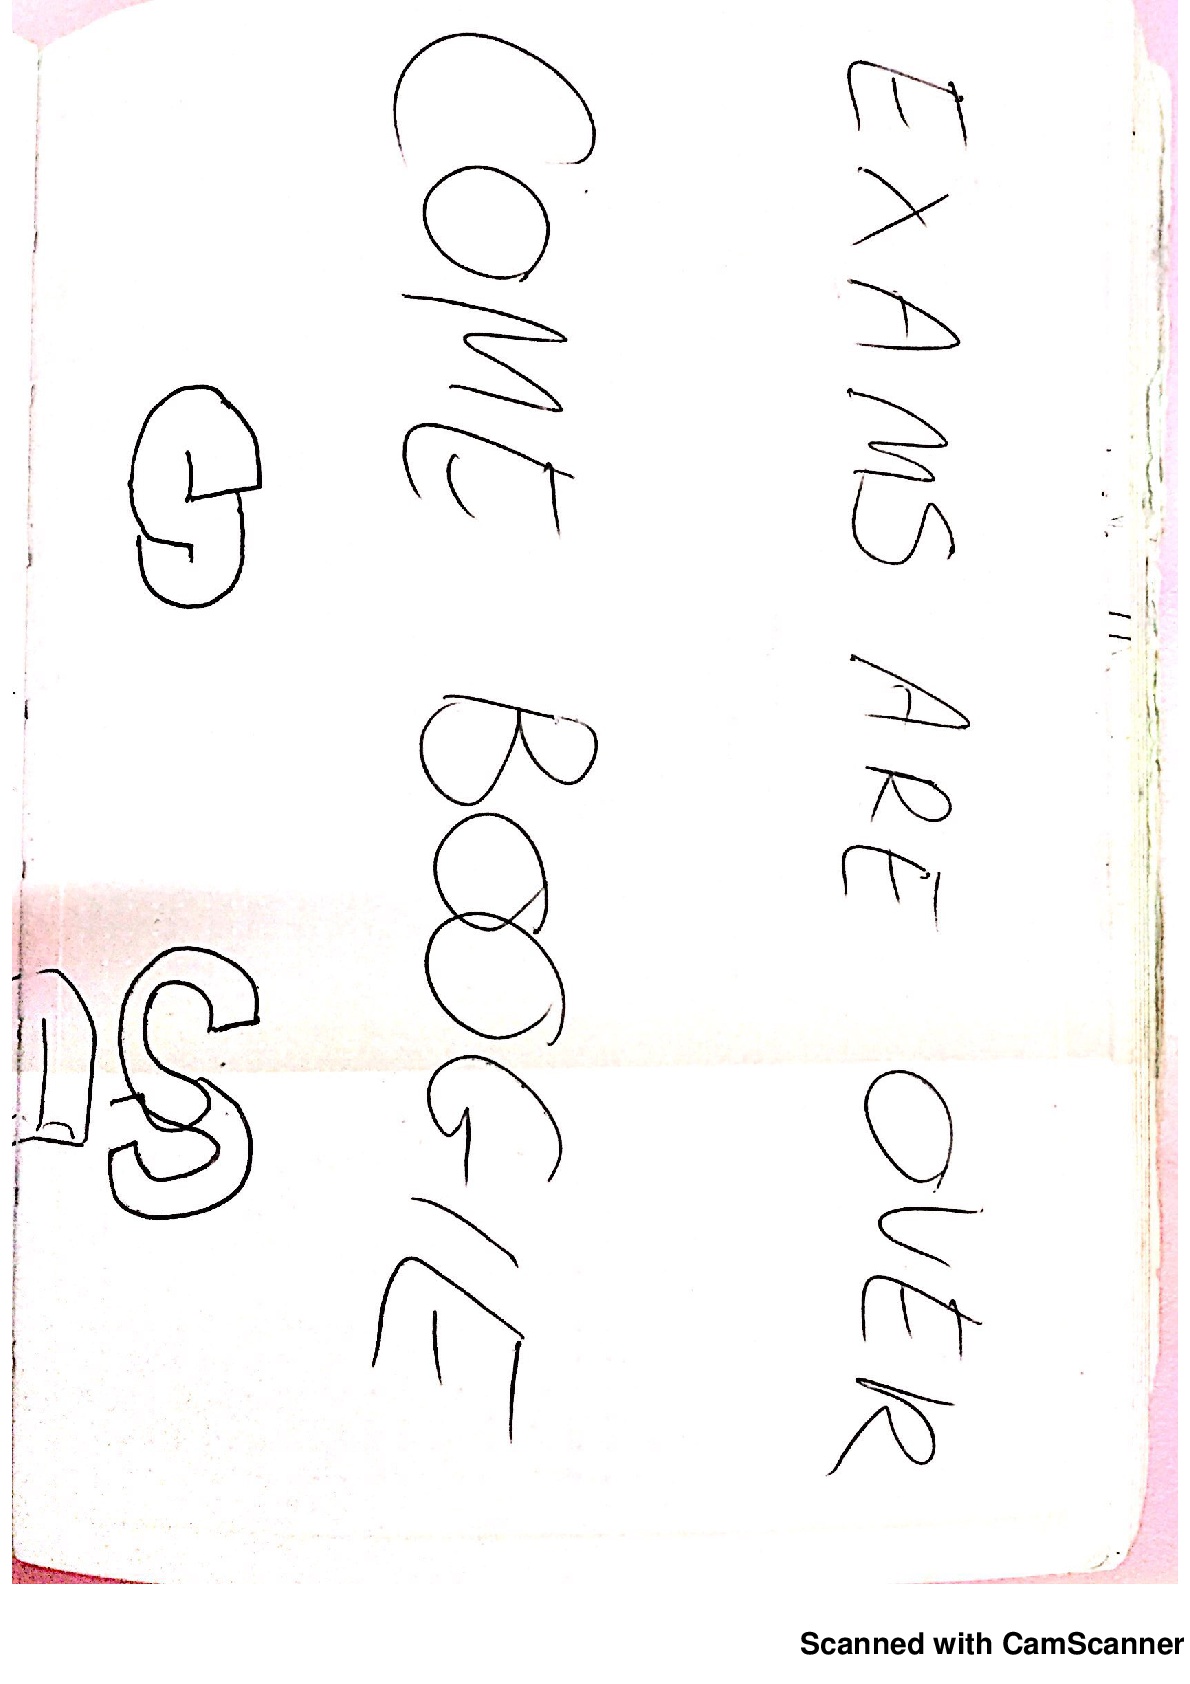 EXAMS ARE OVER
COME BOOGIE
S S
Scanned with CamScanner